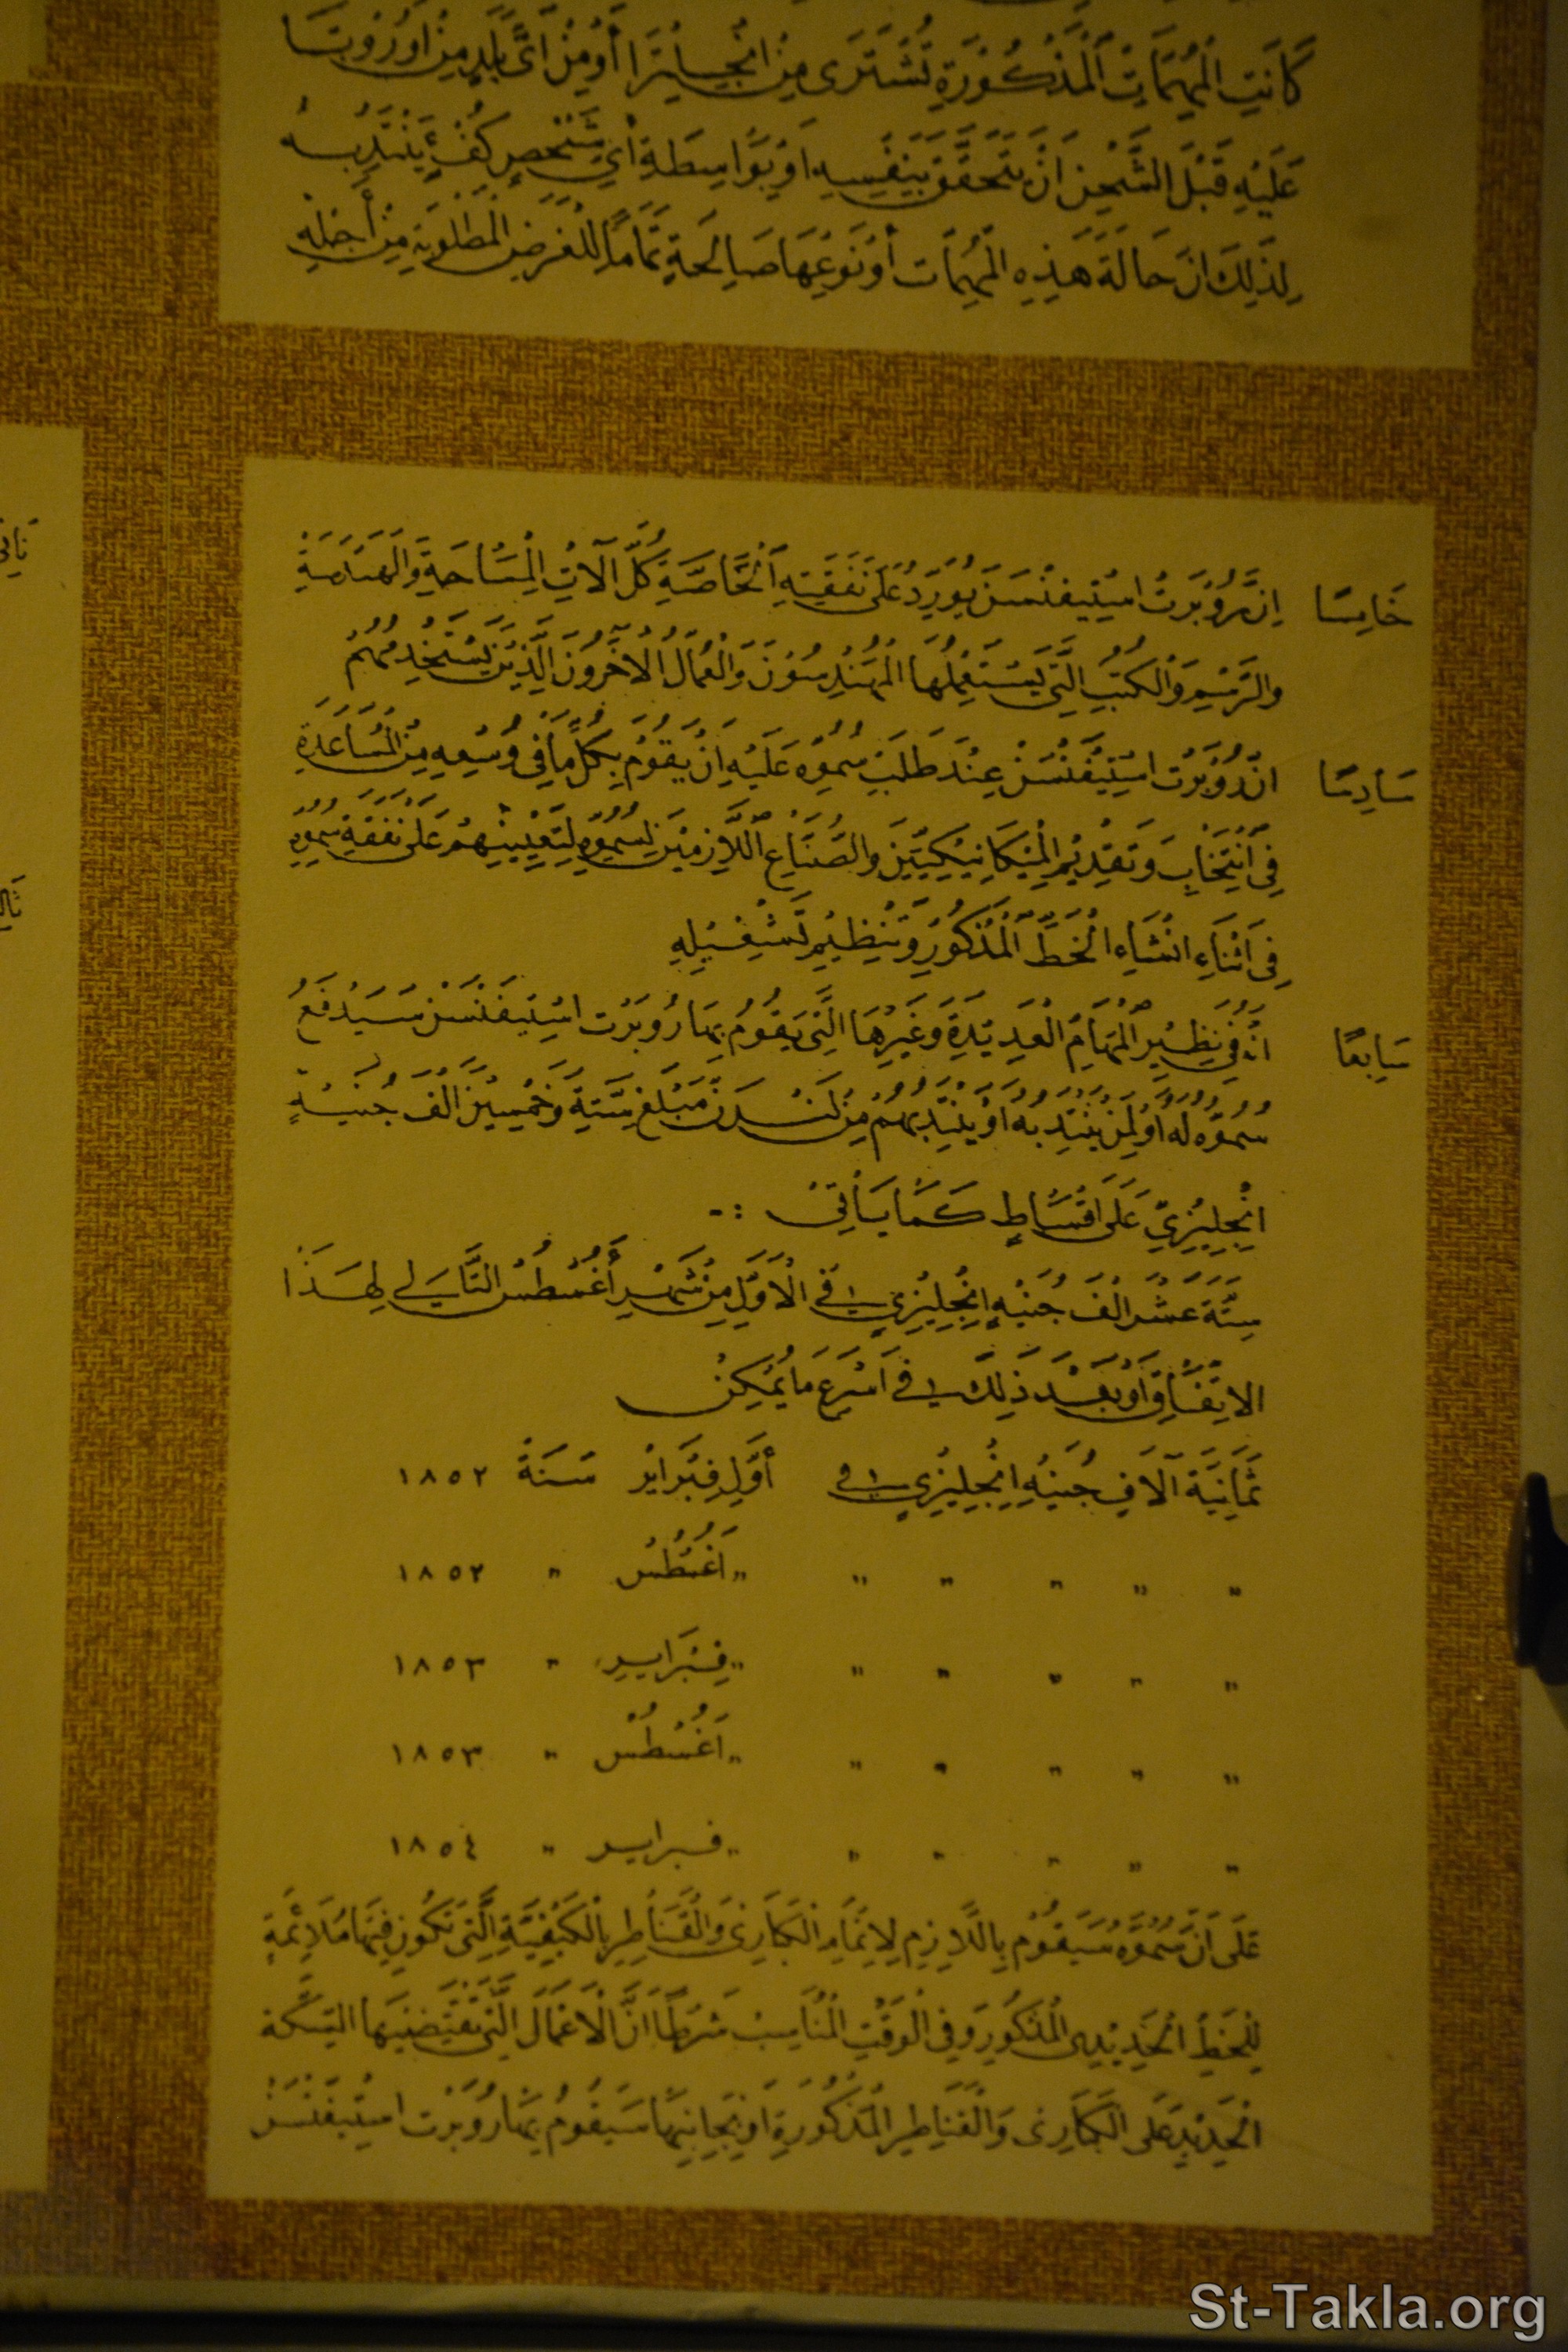 كَانَتِ الْمُهِمَّاتِ الْمَذْكُوْرَةِ تُشْتَرَى مِنْ انْجِلِيْتَرَا أَوْ مِنْ اَيِّ بَلَدٍ مِنْ اوُرُوْبَّا
عَلَيْهِ قَبْلَ الشَّحْنِ اَنْ يَتَحَقَّقَ بِنَفْسِهِ اَوْ بِوَاسِطَةِ أَيِّ شَخْصٍ كُفْءٍ يَنْتَدِبُهُ
لِذَلِكَ انَّ حَالَةَ هَذِهِ الْمُهِمَّات أَوْ نَوْعِهَا صَالِحَةٍ تَمَامًا لِلْغَرَضِ الْمَطْلُوْبَةِ مِنْ أَجْلِهِ
خَامِسًا اِنَّ رُوْبَرْتْ اسْتِيفِنْسَنْ يُوَرِّدُ عَلَى نَفَقَتِهِ الْخَاصَّةِ كُلَّ الآلَاتِ الْمِسَاحَةِ وَالْهَنْدَسَةِ
وَالرَّسْمِ وَالْكُتُبِ الَّتِى يَسْتَعْمِلُهَا الْمُهَنْدِسُوْنَ وَالْعُمَّالُ الْآخَرُوْنَ الَّذِيْنَ يَسْتَخْدِمُهُمْ
سَادِسًا انَّ رُوْبَرْت اسْتِيْفِنْسَنْ عِنْدَ طَلَبِ سُمُوِّهِ عَلَيْهِ اَنْ يَقُوْمَ بِكُلِّ مَا فِى وُسْعِهِ مِنْ الْمُسَاعَدَةِ
فِى اَنْتِخَابِ وَتَقْدِيْمِ الْمِيْكَانِيْكِيِّيْنَ وَالصُّنَّاعِ اللَّازِمِيْنَ لِسُمُوِّهِ لِتَعْيِيْنِهِمْ عَلَى نَفَقَةِ سُمُوِّهِ
فِى اَثْنَاءِ انْشَاءِ الْخَطِّ الْمَذْكُوْرِ وَتَنْظِيْمِ تَشْغِيْلِهِ
سَابِعًا انَّهُ فِى نَظِيْرِ الْمَهَامِّ الْعَدِيْدَةِ وَغَيْرِهَا الَّتِى يَقُوْمُ بِهَا رُوْبَرْت اسْتِيفِنْسَنْ سَيَدْفَعُ
سُمُوُّهُ لَهُ أَوْ لِمَنْ يَنْتَدِبُهُ اَوْ يَنْتَدِبُهُمْ مِنْ لَنْدَنْ مَبْلَغَ سِتَّةٍ وَخَمْسِيْنَ اَلْفَ جُنَيْهٍ
اِنْجِلِيْزِيٍّ عَلَى اقْسَاطٍ كَمَا يَأْتِىْ :-
سِتَّةَ عَشَرَ الْفَ جُنَيْهٍ اِنْجِلِيْزِيٍّ فى الْاَوَّلِ مِنْ شَهْرِ أَغُسْطُسْ التَّالِي لِهَذَا
الاتِّفَاقِ اَوْ بَعْدَ ذَلِكَ فى اَسْرَعِ مَا يُمْكِنُ
ثَمَانِيَةَ آلَافِ جُنَيْهٍ اِنْجِلِيْزِيٍّ فى أَوَّلِ فِبْرَايْرْ سَنَةْ ١٨٥٢
" " " " " " اَغُسْطُسْ " ١٨٥٢
" " " " " " فِبْرَايِرْ " ١٨٥٣
" " " " " " اَغُسْطُسْ " ١٨٥٣
" " " " " " فبراير " ١٨٥٤
عَلَى اَنَّ سُمُوَّهُ سَيَقُوْمُ بِاللَّازِمِ لِاِتْمَامِ الْكَبَارِى وَالْقَنَاطِرِ بِالْكَيْفِيَّةِ الَّتِى تَكُوْنُ فِيْهَا مُلَائِمَةٍ
لِلْخَطِّ الْحَدِيْدِى الْمَذْكُوْرِ وَفِى الْوَقْتِ الْمُنَاسِبْ شَرْطًا اَنَّ الْاَعْمَالَ الَّتِى تَقْتَضِيْهَا السِّكَّة
الْحَدِيْدِ عَلَى الْكَبَارِى وَالْقَنَاطِرِ الْمَذْكُوْرَةِ اَوْ بِجَانِبِهَا سَيَقُوْمُ بِهَا رُوْبَرْت اسْتِيْفِنْسَنْ
St-Takla.org